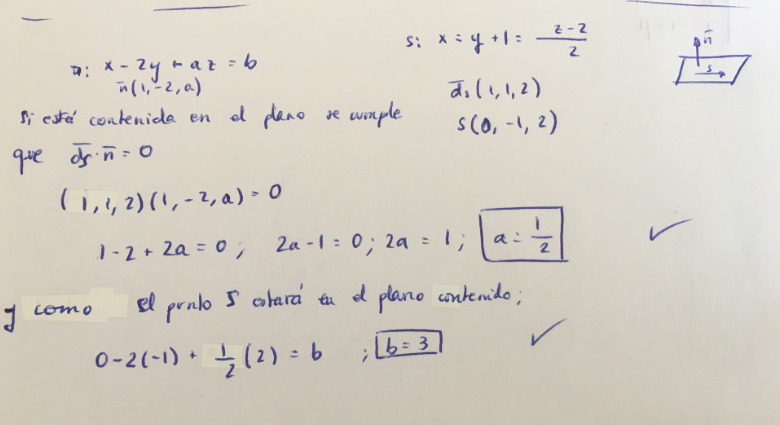 s: x = y + 1 = \frac{z-2}{2}
π: x - 2y + az = b
n̄(1, -2, a)
d̄s(1, 1, 2)
n̄
s
Si está contenida en el plano se cumple
S(0, -1, 2)
que d̄s · n̄ = 0
(1, 1, 2)(1, -2, a) = 0
1 - 2 + 2a = 0; 2a - 1 = 0; 2a = 1; a = \frac{1}{2}
y como el punto S estará en el plano contenido;
0 - 2(-1) + \frac{1}{2}(2) = b ; b = 3